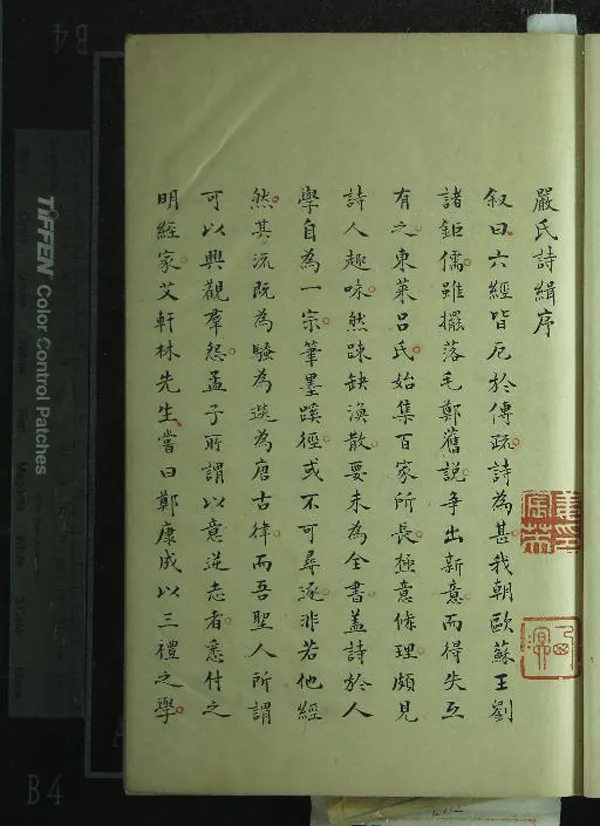 嚴氏詩緝序
叙曰六經皆厄於傳疏詩為甚我朝歐蘇王劉
諸鉅儒雖擺落毛鄭舊說爭出新意而得失互
有之東萊呂氏始集百家所長極意條理頗見
詩人趣味然踈缺渙散要未為全書蓋詩於人
學自為一宗筆墨蹊徑或不可尋逐非若他經
然其流既為騷為選為唐古律而吾聖人所謂
可以興觀羣怨孟子所謂以意逆志者悉付之
明經家艾軒林先生嘗曰鄭康成以三禮之學
TIFFEN Color Control Patches
B4
B4